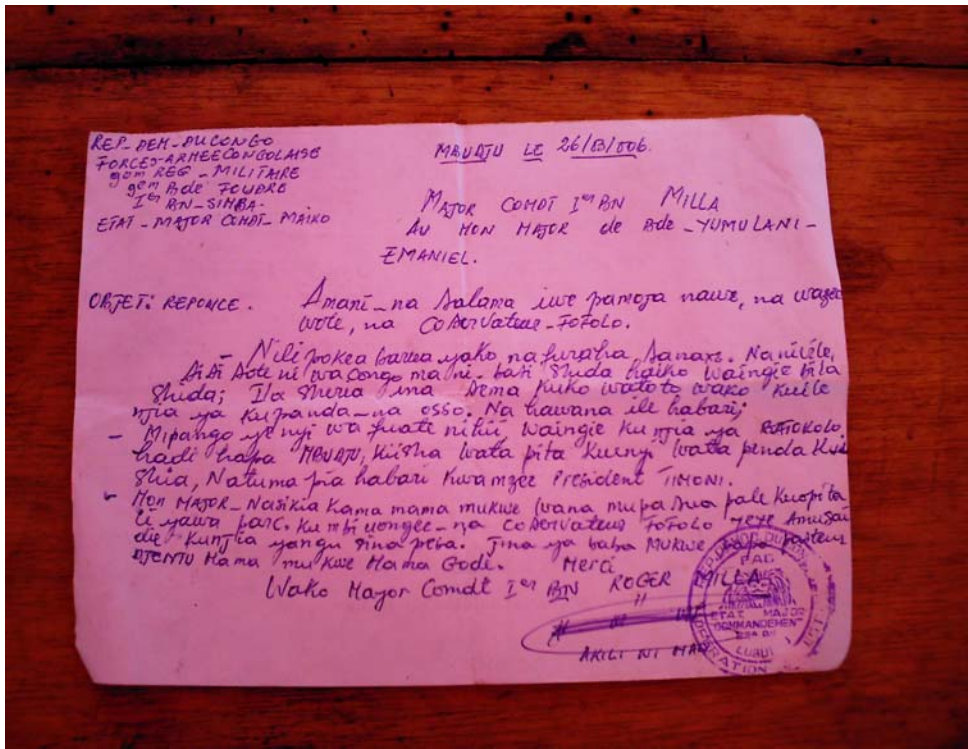 REP-DEM-DU CONGO
FORCES-ARMEE CONGOLAISE
9em REG - MILITAIRE
9em Bde FOUDRE
Ier BN-SIMBA.
ETAT-MAJOR COMDT-MAIKO
MBUATU LE 26/
MAJOR COMDT Ier BN MILLA
AU MON MAJOR de Bde - YUMULANI -
EMANIEL.
OBJET: REPONCE. Amani-na Salama iwe pamoja nawe, na wazee
wote, na CoBervateur-FOFOLO.
- Nili pokea barua yako na furaha Sana. Na
Sisi Sote ni wa Congo mani. basi Shida haiko Waingie bila
Shida; Ila Sheria ina Sema kuko watoto wako kwile
njia ya Kupanda-na osso. Na hawana ile habari;
- Mipango ye nyi wa fuate nihii Waingie Ku njia ya
hadi hapa MBUATU, Kiisha Wata pita Kwenyi Watta penda
Shia, Natuma pia habari Kwa mzee President TIMONI.
- Mon MAJOR - Nasikia Kama mama mukwe wana mupa Sua pale Kuopita
li yawa parc. Ku mbi yongee-na CoBervateur FOFOLO yeye Amusai
die Kunjia yangu Sina pesa. Jina ya baba Mukwe Papa Pasteur
Mama mu Kwe Mama Godé. Merci
Wako Mayor Comdt Ier BN ROGER MILLA
AKILI NI MALI
PAD
ETAT MAJOR
COMMANDEMENT
LUBUT